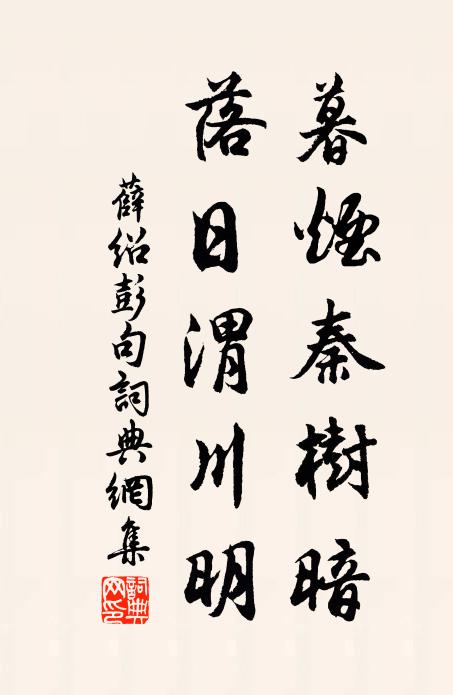 暮煙秦樹暗
落日渭川明
薛紹彭句詞典網集
詞典網印